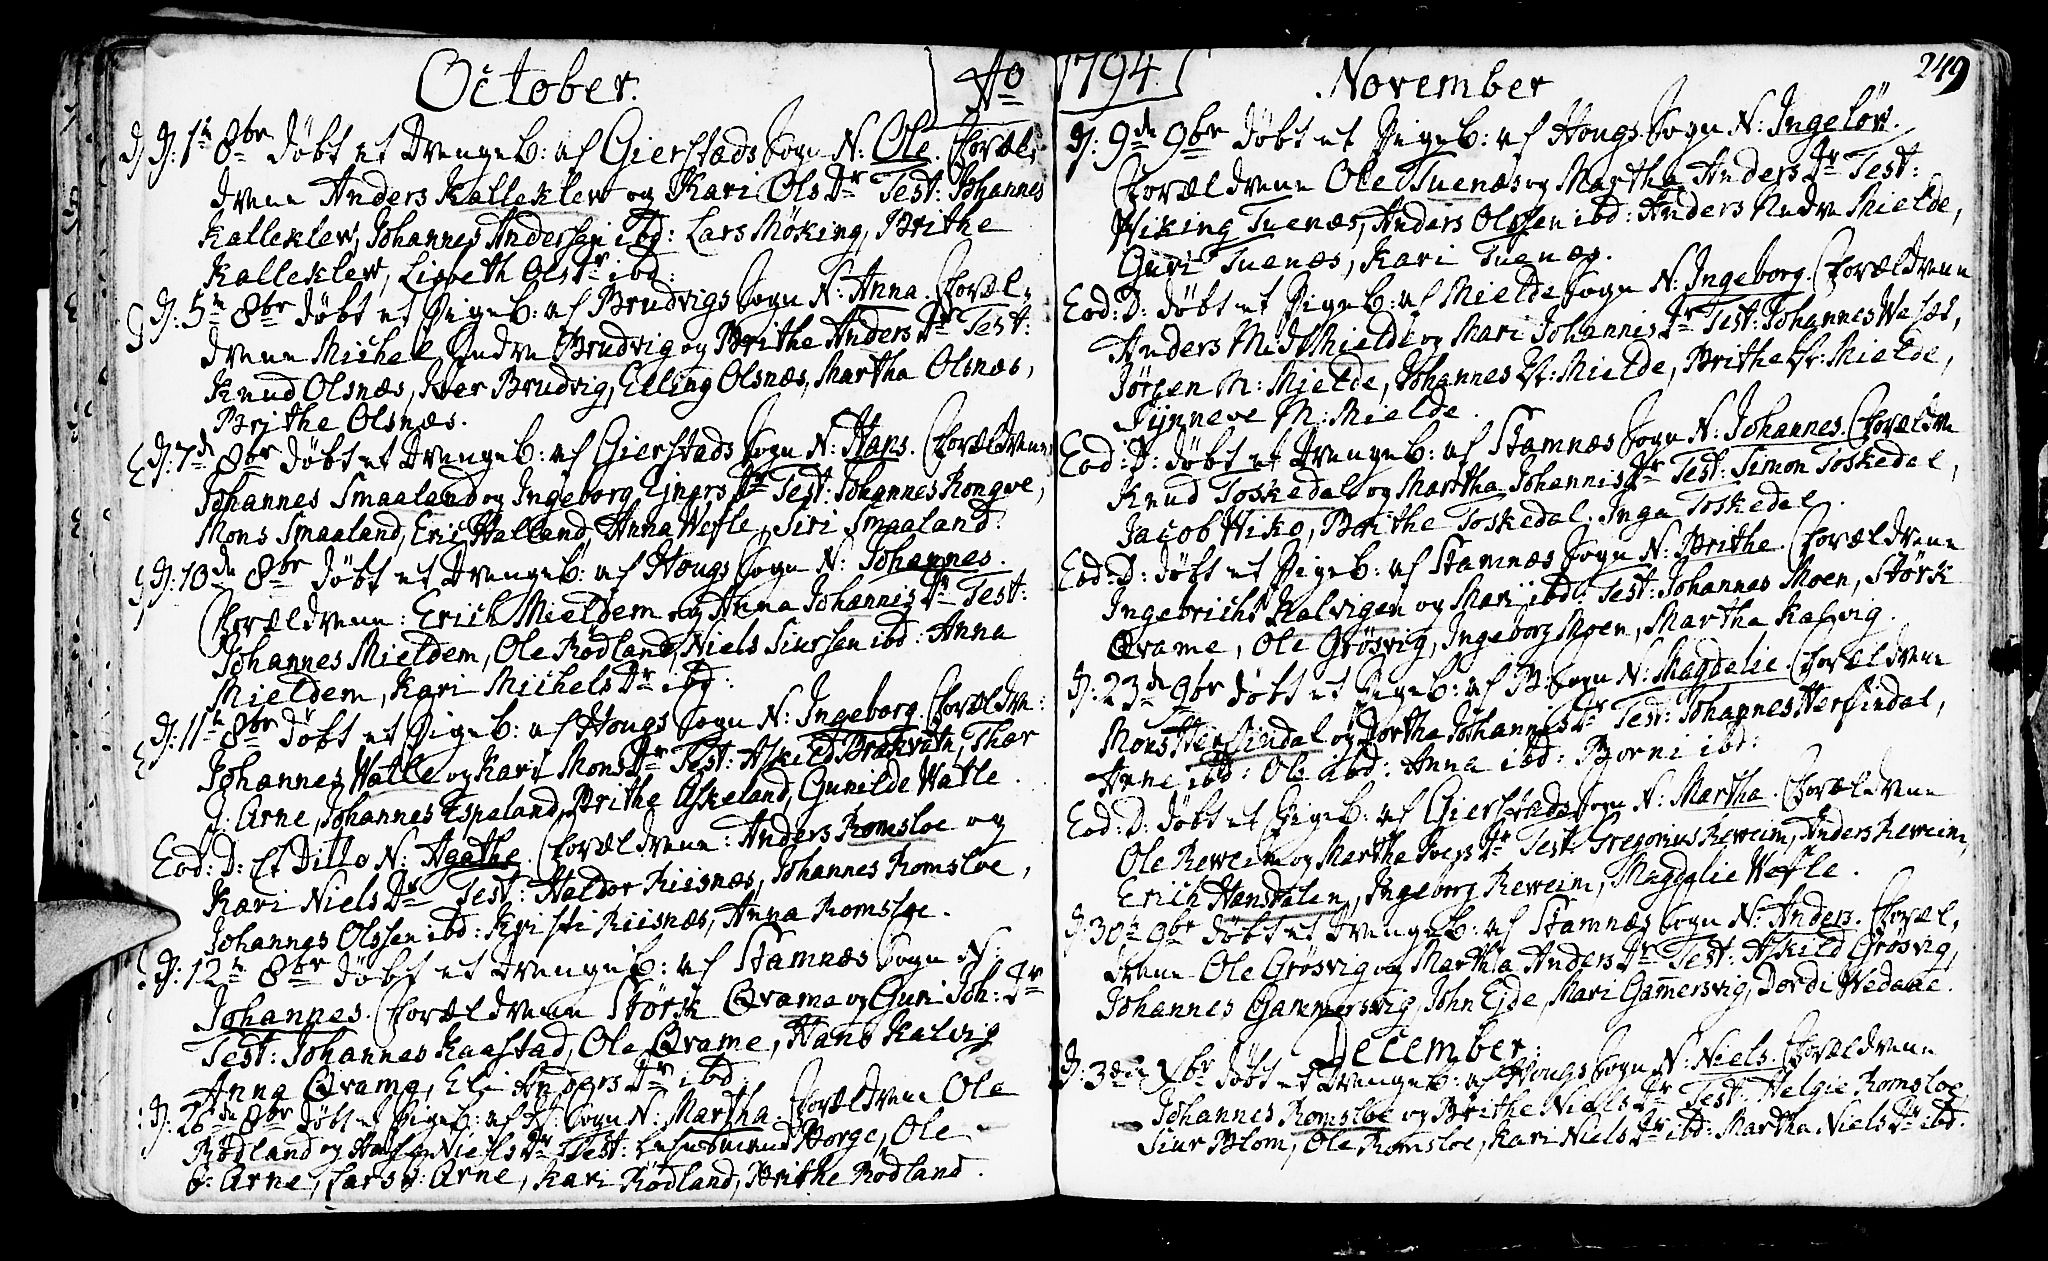 October. Ao
D: 1te 8br døbt et Drengeb: af Gierstads Sogn N: Ole. Foræl-
drene Anders Kalleklew og Kari Ols Dr Test: Johannes
Kalleklew, Johannes Andersen ibd: Lars Møking, Brithe
Kalleklew, Lisbeth Ols Dr ibd:
D: 5te 8br døbt et Pigeb: af Brudvigs Sogn N: Anna. Foræl-
drene Michel Indre Brudvig og Brithe Anders Dr Test:
Knud Olsnæs, Iver Brudvig, Elling Olsnæs, Martha Olsnæs,
Brithe Olsnæs.
D: 7de 8br døbt et Drengeb: af Gierstads Sogn N: Hans. Forældrene
Johannes Smaaland og Ingeborg Ejners Dr Test: Johannes Rongve,
Mons Smaaland, Eric Halland, Anna Wefle, Siri Smaaland.
D: 10de 8br døbt et Drengeb: af Hougs Sogn N: Johannes.
Forældrene: Erich Mieldem og Anna Johannis Dr Test:
Johannes Mieldem, Ole Rødland, Niels Siursen ibd: Anna
Mieldem, Kari Michels Dr ibd:
D: 11te 8br døbt et Pigeb: af Hougs Sogn N: Ingeborg. Forældre:
Johannes Watle og Kari Mons Dr Test: Askild Brækvith, Thar
I: Arne, Johannes Espeland, Brithe Askeland, Gunilde Watle.
Eod: D: Et Ditto N: Agathe. Forældrene: Anders Romsloe og
Kari Niels Dr Test: Haldor Riisnæs, Johannes Romsloe,
Johannes Olssen ibd: Kristi Riisnæs, Anna Romsloe.
D: 12te 8br døbt et Drengeb: af Stamnæs Sogn N:
Johannes. Forældrene Størk Qvame og Guri Joh: Dr
Test: Johannes Kaastad, Ole Qvame, Hans Kalvig
Anna Qvame, Eli Anders Dr ibd
D: 26de 8br døbt et Pigeb: af H: Sogn N: Martha. Forældrene Ole
Rødland og Niels Dr Test: Borge, Ole
I: Arne, Lars I: Arne, Kari Rødland, Brithe Rødland.
1794. November 249
D: 9de 9br døbt et Pigeb: af Hougs Sogn N: Ingeløv.
Forældrene Ole Tuenæs og Martha Anders Dr Test:
Wiking Tuenæs, Anders Olssen ibd: Anders Nedre Mielde,
Guri Tuenæs, Kari Tuenæs.
Eod: D: døbt et Pigeb: af Mielde Sogn N: Ingeborg. Forældrene
Anders Mid Mielde og Mari Johannis Dr Test: Johannes Wæsæt,
Jørgen M: Mielde, Johannes Ø: Mielde, Brithe Øv: Mielde,
Synneve M: Mielde.
Eod: D: døbt et Drengeb: af Stamnæs Sogn N: Johannes. Forældrene
Knud Toskedal og Martha Johannis Dr Test: Simon Toskedal,
Jacob Hiko, Brithe Toskedal, Inga Toskedal.
Eod: D: døbt et Pigeb: af Stamnæs Sogn N: Brithe. Forældrene
Ingebricht Kalvigen og Mari ibd: Test: Johannes Moen, Størk
Qvame, Ole Grøsvig, Ingeborg Moen, Martha Kalvig.
D: 23de 9br døbt et Pigeb: af B: Sogn N: Magdalie. Forældrene
Mons Herfindal og Dortha Johannis Dr Test: Johannes Herfindal,
Arne ibd: Ole ibd: Anna ibd: Borni ibd:
Eod: D: døbt et Pigeb: af Gierstads Sogn N: Martha. Forældrene
Ole Reweim og Martha Joens Dr Test: Gregorius Reweim, Anders Reweim,
Erich Hanstalen, Ingeborg Reweim, Magdalie Wefle.
D: 30te 9br døbt et Drengeb: af Stamnæs Sogn N: Anders. Foræl-
drene Ole Grøsvig og Martha Anders Dr Test: Askild Grøsvig,
Johannes Gammersvig, John Eide, Mari Gamersvig, Dordi Wedaae.
December.
D: 3die Xbr døbt et Drengeb: af Hougs Sogn N: Niels. Forældrene
Johannes Romsloe og Brithe Niels Dr Test: Helgie Romsloe,
Siur Blom, Ole Romsloe, Kari Niels Dr ibd: Martha Niels Dr ibd.